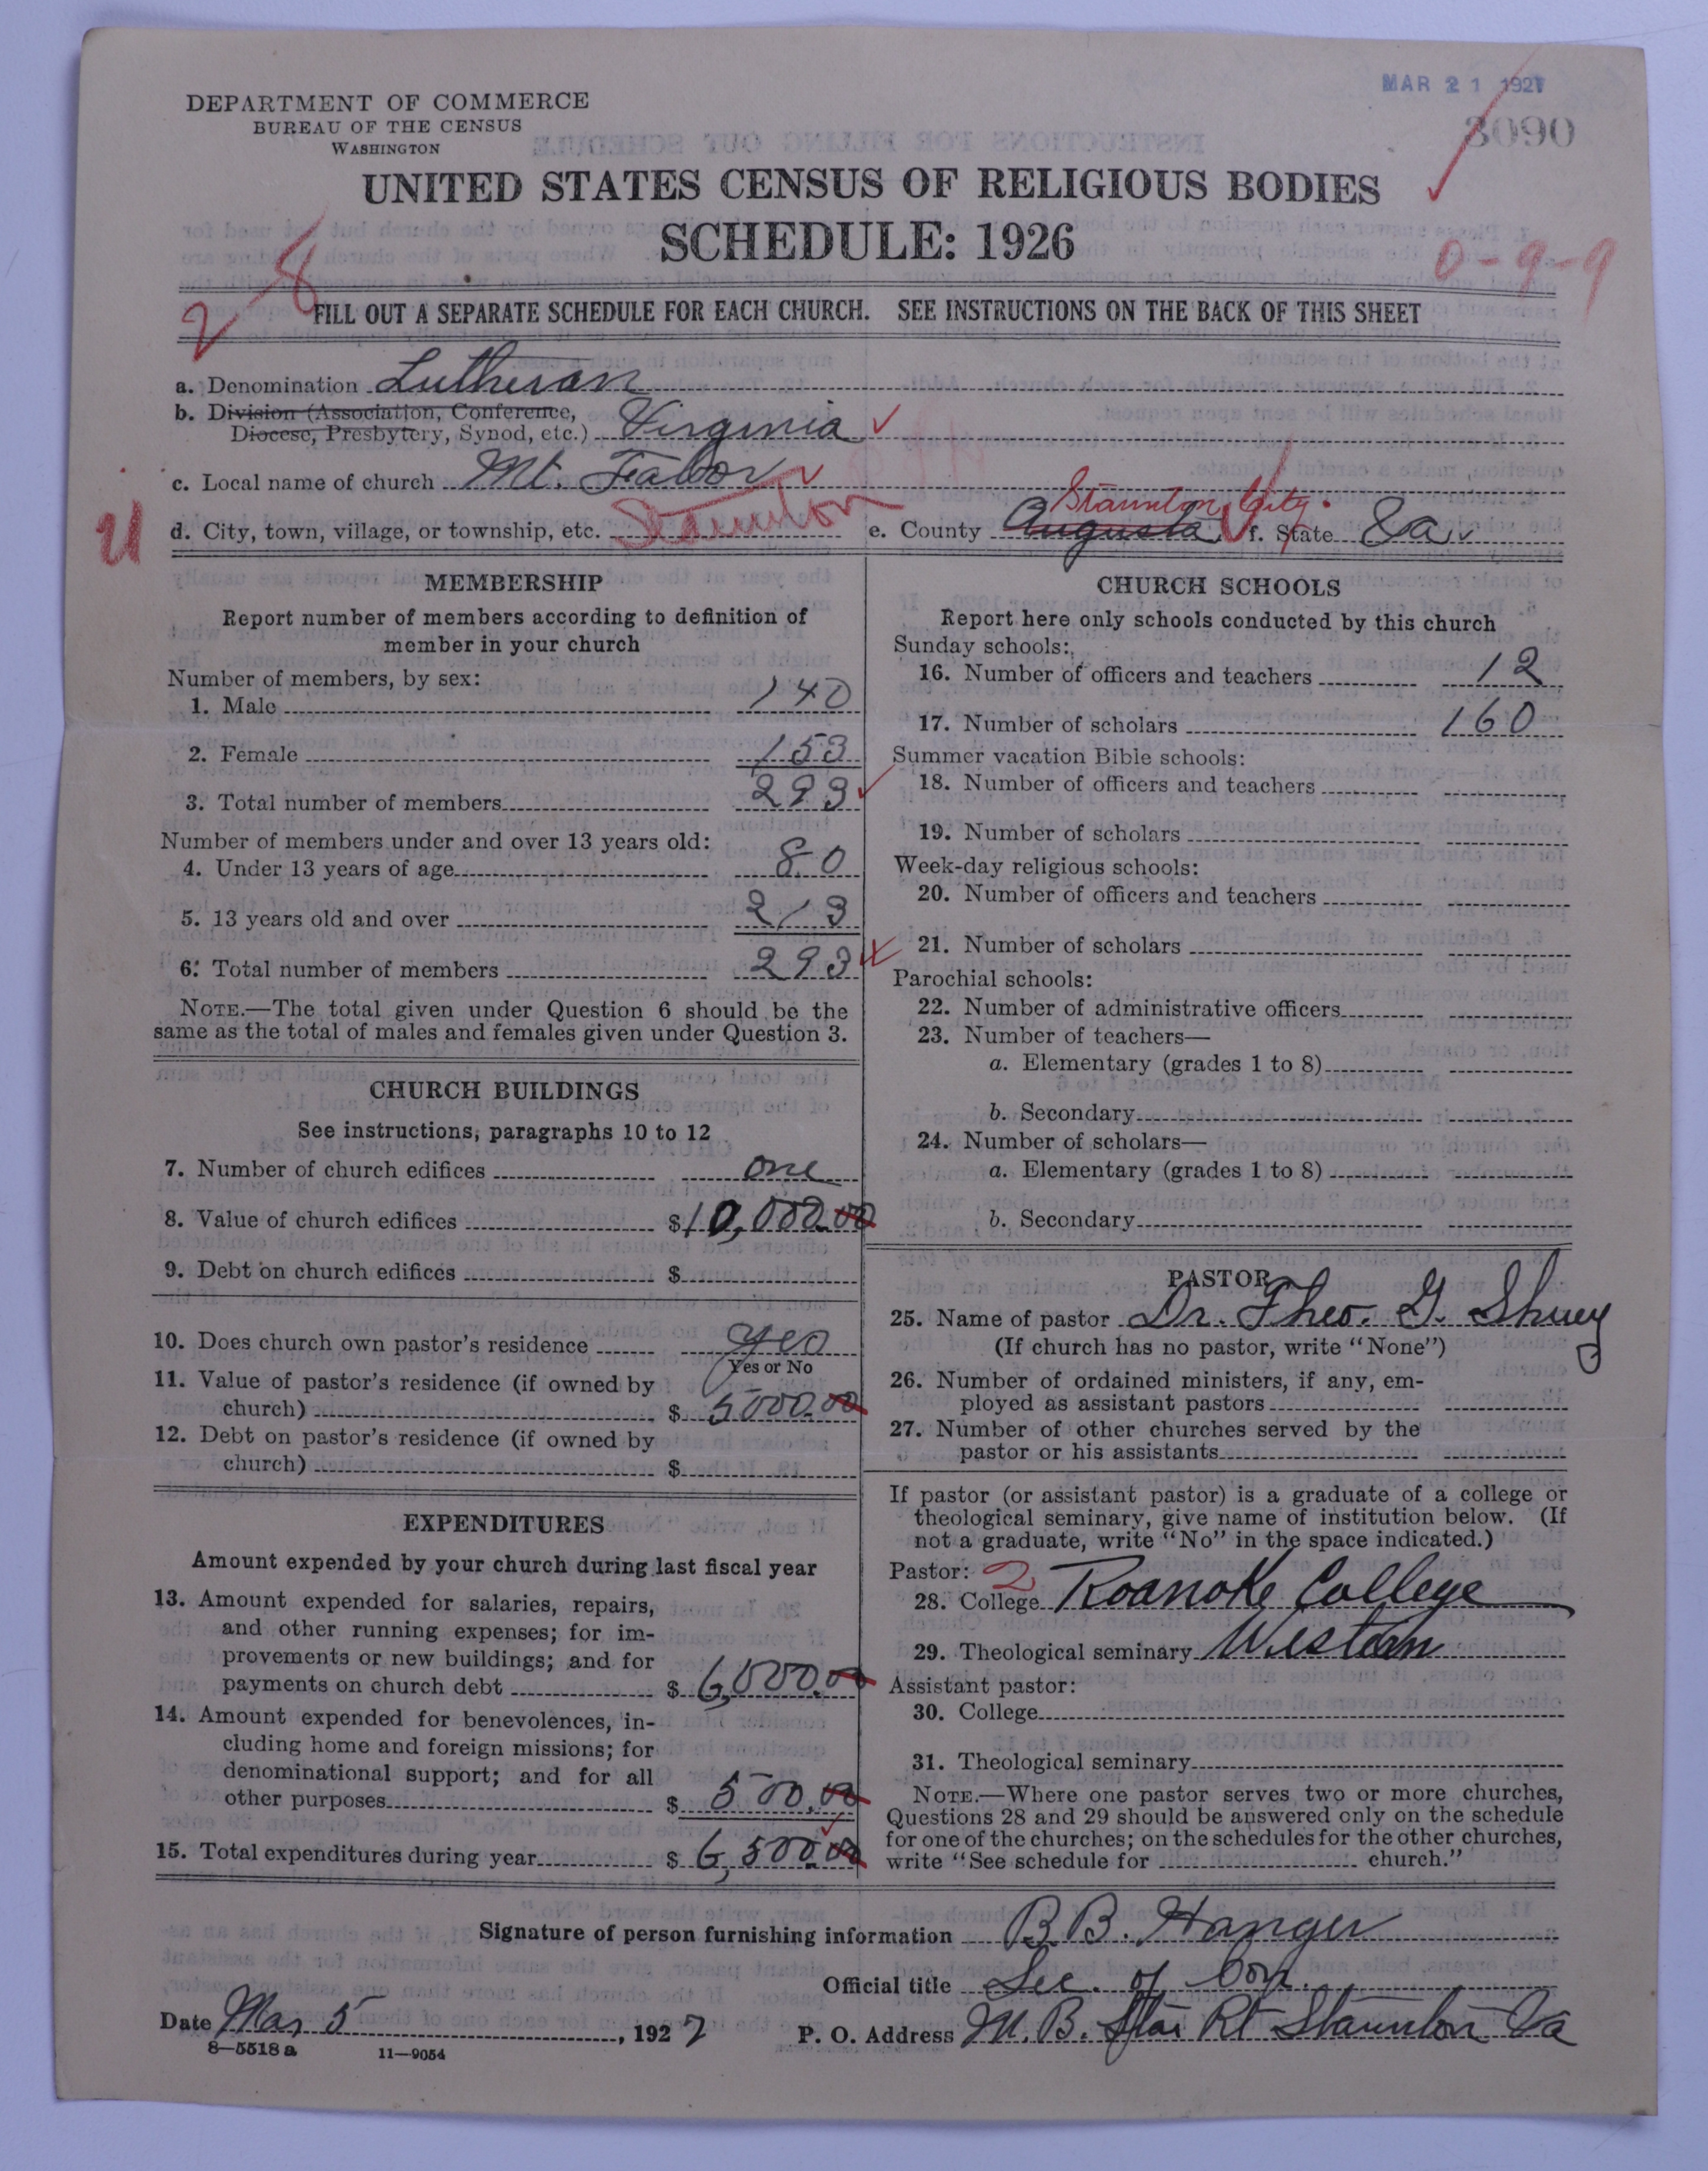 MAR 21 1927
DEPARTMENT OF COMMERCE
BUREAU OF THE CENSUS
WASHINGTON
3090
UNITED STATES CENSUS OF RELIGIOUS BODIES
SCHEDULE: 1926
0-9-9
2-8
FILL OUT A SEPARATE SCHEDULE FOR EACH CHURCH. SEE INSTRUCTIONS ON THE BACK OF THIS SHEET
a. Denomination Lutheran
b. Division (Association, Conference,
Diocese, Presbytery, Synod, etc.) Virginia
c. Local name of church Mt. Tabor
Staunton City.
d. City, town, village, or township, etc. Staunton e. County Augusta f. State Va.
MEMBERSHIP
Report number of members according to definition of
member in your church
Number of members, by sex:
1. Male 140
2. Female 153
3. Total number of members 293
Number of members under and over 13 years old:
4. Under 13 years of age 80
5. 13 years old and over 213
6. Total number of members 293
NOTE.—The total given under Question 6 should be the
same as the total of males and females given under Question 3.
CHURCH BUILDINGS
See instructions, paragraphs 10 to 12
7. Number of church edifices one
8. Value of church edifices $10,000.00
9. Debt on church edifices $
10. Does church own pastor's residence yes
Yes or No
11. Value of pastor's residence (if owned by
church) $ 5000.00
12. Debt on pastor's residence (if owned by
church) $
EXPENDITURES
Amount expended by your church during last fiscal year
13. Amount expended for salaries, repairs,
and other running expenses; for im-
provements or new buildings; and for
payments on church debt $ 6,000.00
14. Amount expended for benevolences, in-
cluding home and foreign missions; for
denominational support; and for all
other purposes $ 500.00
15. Total expenditures during year $ 6,500.00
CHURCH SCHOOLS
Report here only schools conducted by this church
Sunday schools:
16. Number of officers and teachers 12
17. Number of scholars 160
Summer vacation Bible schools:
18. Number of officers and teachers
19. Number of scholars
Week-day religious schools:
20. Number of officers and teachers
21. Number of scholars
Parochial schools:
22. Number of administrative officers
23. Number of teachers—
a. Elementary (grades 1 to 8)
b. Secondary
24. Number of scholars—
a. Elementary (grades 1 to 8)
b. Secondary
PASTOR
25. Name of pastor Dr. Theo. G. Shuey
(If church has no pastor, write "None")
26. Number of ordained ministers, if any, em-
ployed as assistant pastors
27. Number of other churches served by the
pastor or his assistants
If pastor (or assistant pastor) is a graduate of a college or
theological seminary, give name of institution below. (If
not a graduate, write "No" in the space indicated.)
Pastor: 2
28. College Roanoke College
29. Theological seminary Western
Assistant pastor:
30. College
31. Theological seminary
NOTE.—Where one pastor serves two or more churches,
Questions 28 and 29 should be answered only on the schedule
for one of the churches; on the schedules for the other churches,
write "See schedule for church."
Signature of person furnishing information B.B. Hanger
Official title Sec. of Con.
Date Mar 5, 1927 P. O. Address M.B. Star Rt Staunton Va
8—5518a 11—9054